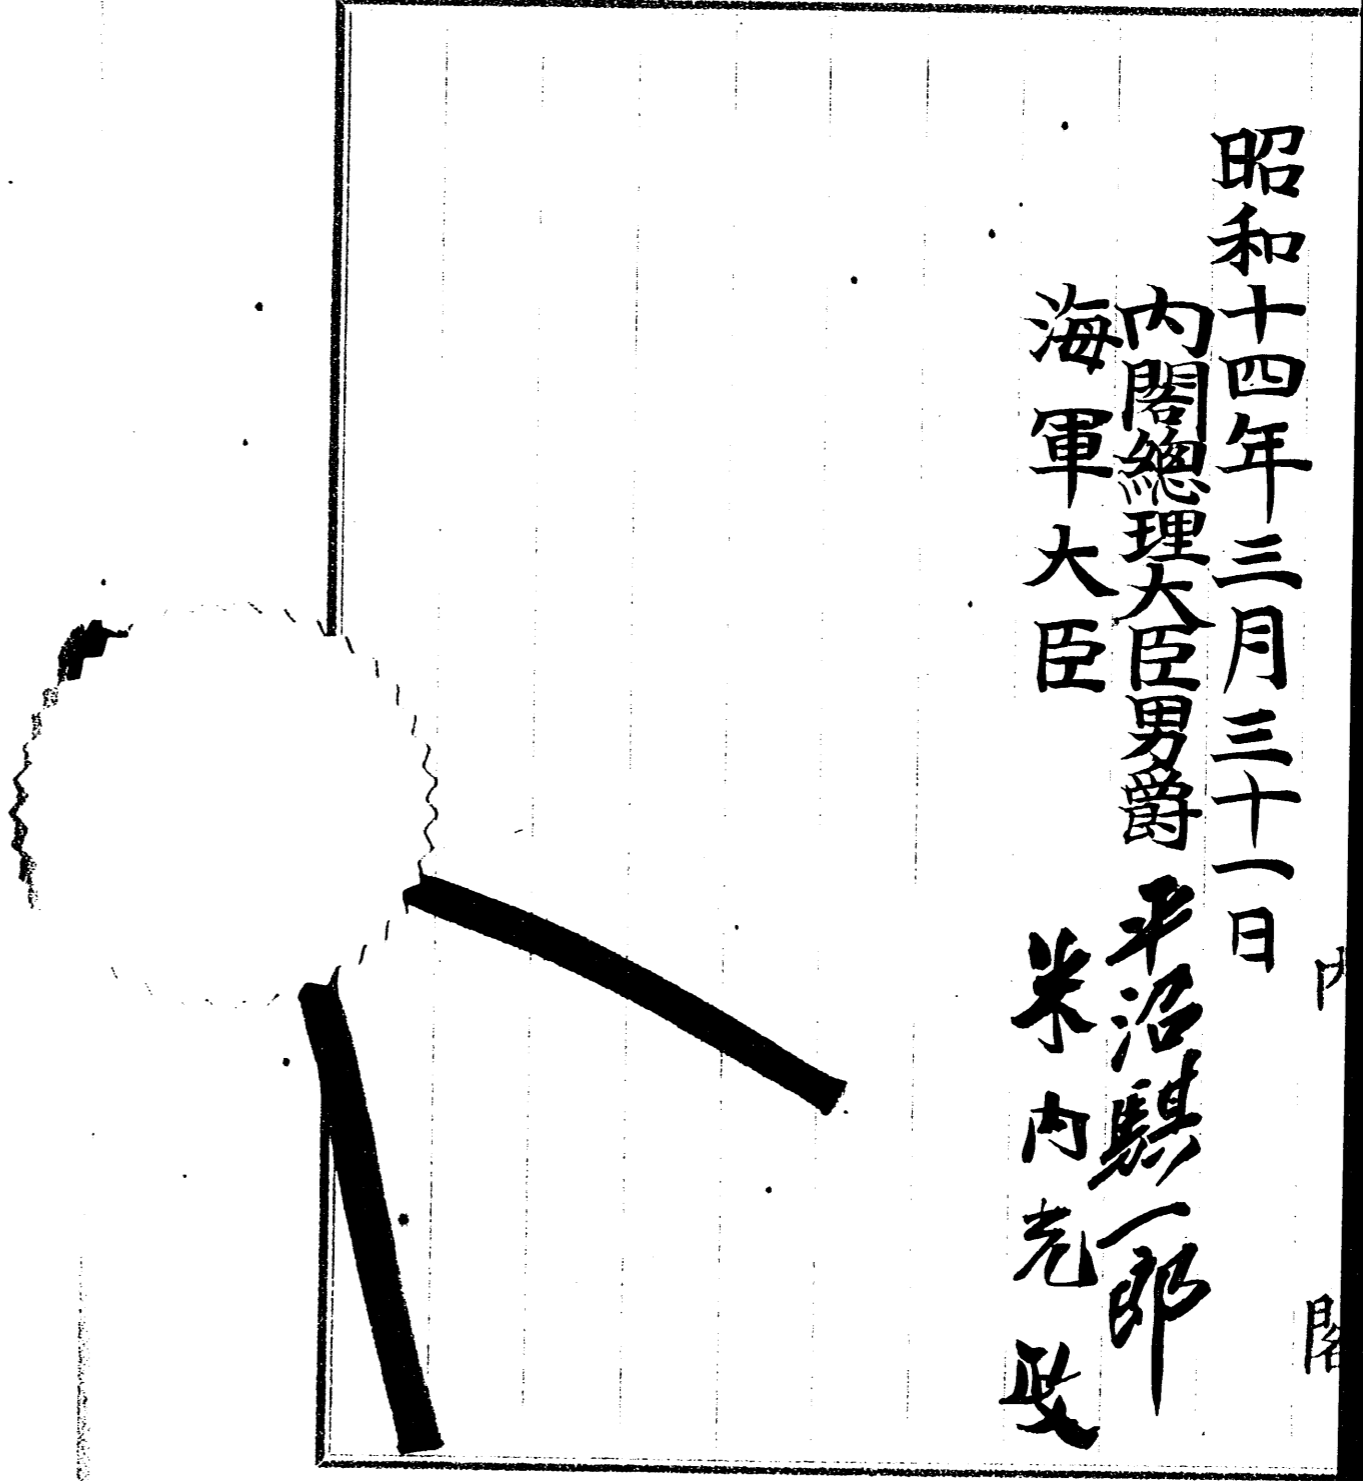 昭和十四年三月三十一日
内閣總理大臣男爵 平沼騏一郎
海軍大臣 米内光政
内閣